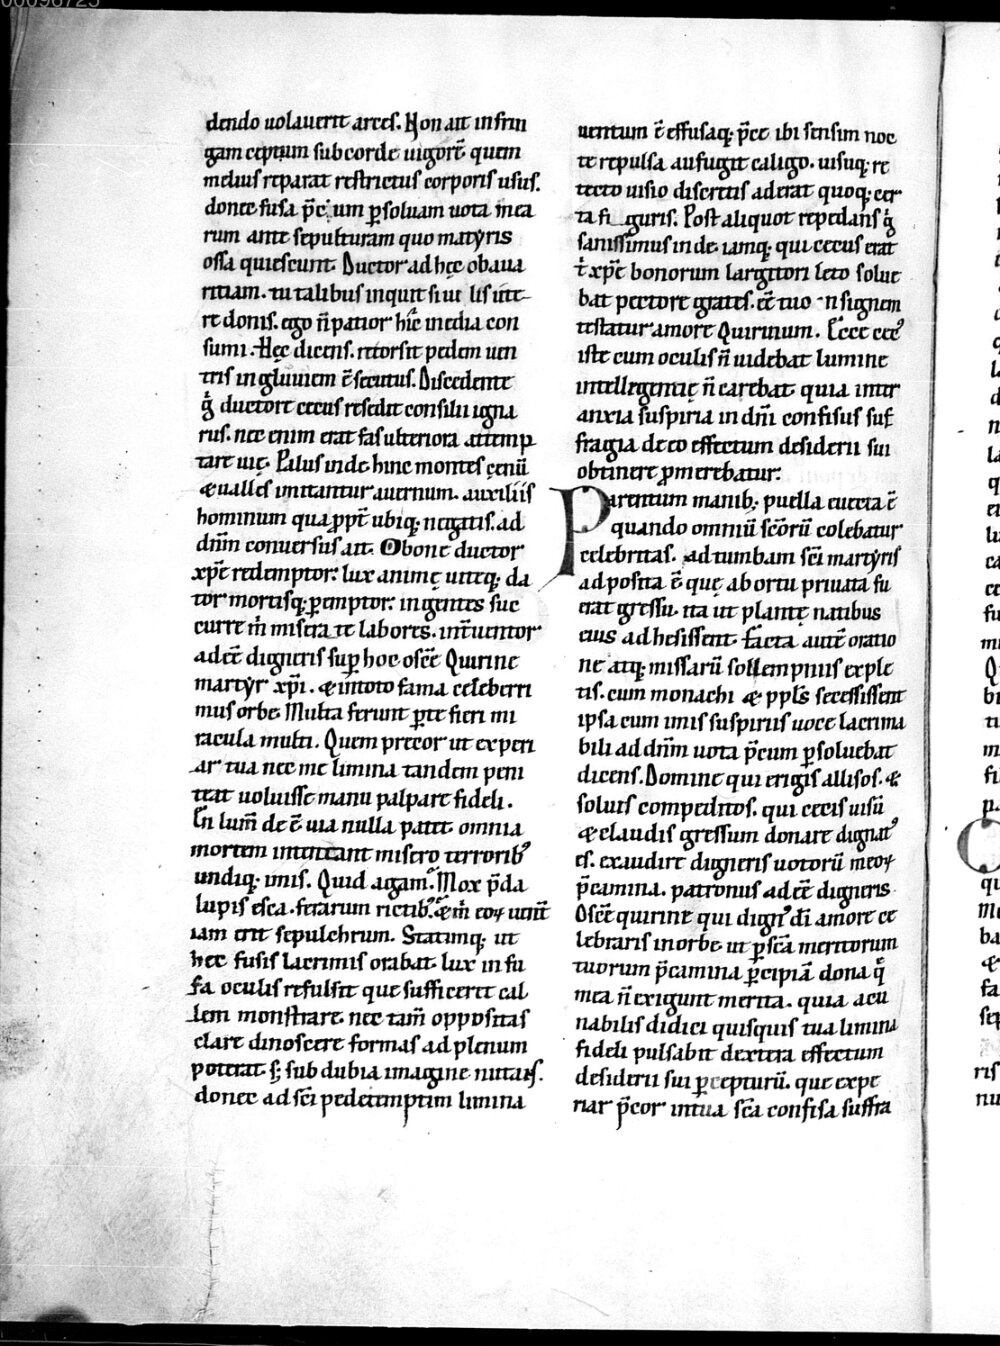 dendo uolauerit arces. Non ait infrin
gam ceptum sub corde uigorē quem
melius reparat restrictus corporis usus.
donec fusa p̄cum ꝑsoluam uota mea
rum ante sepulturam quo martyris
ossa quiescunt. Ductor ad hęc ob aua
ritiam. tu talibus inquit si uis utere
re donis. ego n̄ patior hic inedia con
sumi. Hęc dicens. retorsit pedem uen
tris ingluuiem ē secutus. Discedente
g̊ ductore cecus resedit consilii igna
rus. nec enim erat fas ulteriora attemp
tare uię. Palus inde hinc montes cenū
& ualles imitantur auernum. auxiliis
hominum qua ꝓpt̄ ubiq; negatis. ad
dn̄m conuersus ait. O bone ductor
xp̄e redemptor. lux animę uiteq; da
tor mortisq; ꝑemptor. ingentes suc
curre m̄ misera te labores. int̄uentor
adēē digneris suꝑ hoc oscē Quirine
martyr xp̄i. & in toto fama celeberri
mus orbe. Multa ferunt ꝑ te fieri mi
racula multi. Quem precor ut experi
ar tua nec me limina tandem peni
teat uoluisse manu palpare fideli.
En lum̄ deē uia nulla patet. omnia
mortem intentant misero terrorib;
undiq; imis. Quid agam. Mox p̄da
lupis esca. ferarum rictib; & m̄ eoꝝ uent̄
iam erit sepulchrum. Statimq; ut
hec fusis lacrimis orabat. lux infu
sa oculis refulsit que sufficeret cal
lem monstrare. nec tam̄ oppositas
clare dinoscere formas ad plenum
poterat. s; sub dubia imagine nutans.
donec ad sc̄i pedetemptim limina
uentum ē effusaq; p̄ce ibi sensim noc
te repulsa aufugit caligo. uisuq; re
tecto uisio disertis aderat quoq; cer
ta figuris. Post aliquot repedans g̊
sanissimus inde. iamq; qui cecus erat
t̄ xp̄e bonorum largitori leto solue
bat pectore grates. cē tuo insignem
testatur amore Quirinum. Ecce
iste cum oculis n̄ uidebat lumine
intellegentię n̄ carebat. quia inter
anxia suspiria in dn̄i confisus suf
fragia deco effectum desiderii sui
obtinere ꝓmerebatur.
Parentum manib; puella euecta ē
quando omniū sc̄orū colebatur
celebritas. ad tumbam sc̄i martyris
adposita ē quę ab ortu priuata fu
erat gressu. ita ut plantę natibus
eius adhesissent. facta autē oratio
ne atq; missarū sollempniis exple
tis. cum monachi & ppl̄s secessissent
ipsa cum imis suspiriis uoce lacrima
bili ad dn̄m uota p̄cum ꝑsoluebat
dicens. Domine qui erigis allisos. &
soluis compeditos. qui cecis uisū
& claudis gressum donare dignatꝰ
es. exaudire digneris uotorū meoꝝ
p̄camina. patronus adēē digneris
Oscē quirine qui dignꝰ di amore ce
lebraris in orbe. ut ꝑ scā meritorum
tuorum p̄camina ꝑcipiā dona q̄
mea n̄ exigunt merita. quia acu
nabilis didici quisquis tua limina
fideli pulsabit dextera effectum
desiderii sui ꝑcepturū. que expe
riar p̄cor in tua scā confisa suffra